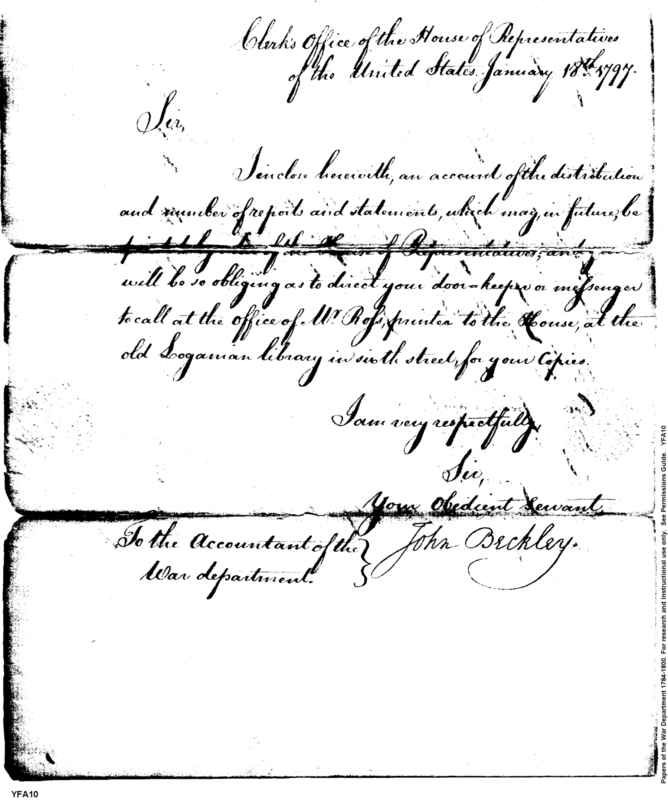 Clerk's Office of the House of Representatives
of the United States, January 18th 1797.
Sir,
I inclose herewith, an account of the distribution
and number of reports and statements, which may, in future, be
of the House of Representatives; and
will be so obliging as to direct your door-keeper or messenger
to call at the office of Mr. Ross, printer to the House, at the
old Logaman library in sixth street, for your Copies.
I am very respectfully,
Sir,
Your Obedient Servant,
John Beckley.
To the Accountant of the
War department.
YFA10
Papers of the War Department 1784-1800. For research and instructional use only. See Permissions Guide. YFA10